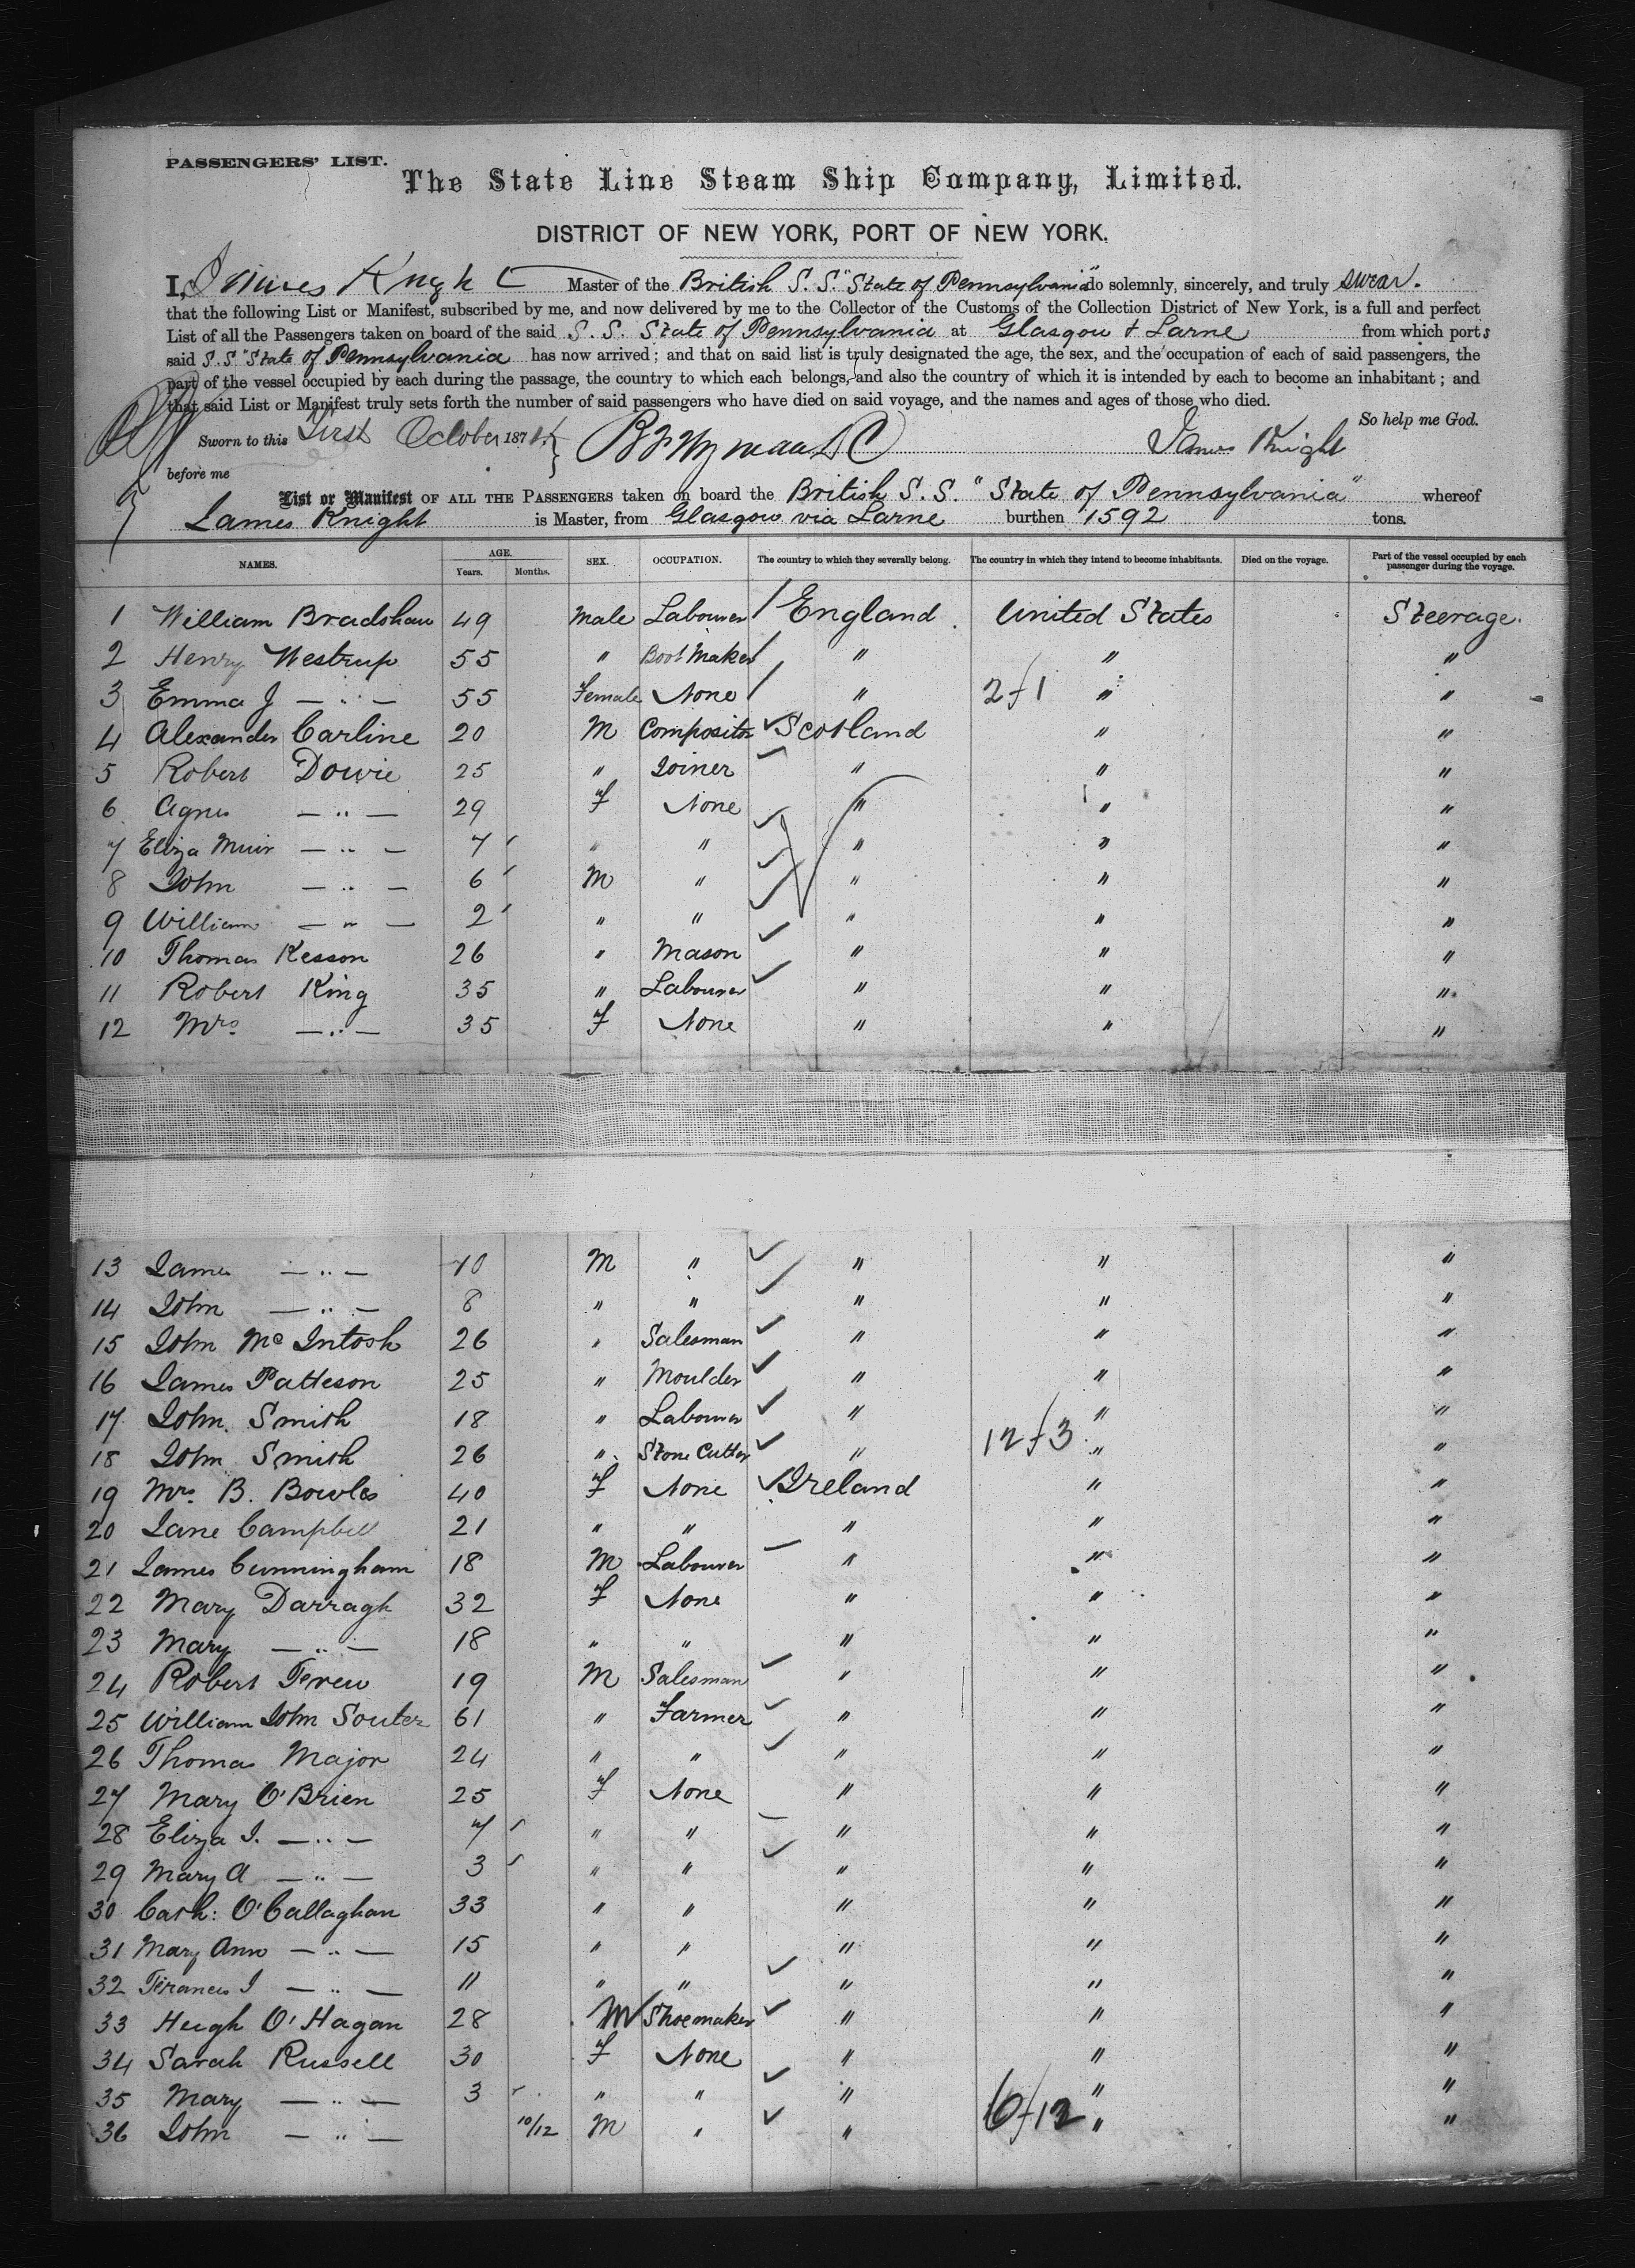 PASSENGERS' LIST.
The State Line Steam Ship Company, Limited.
DISTRICT OF NEW YORK, PORT OF NEW YORK.
I, James Knight Master of the British S. S. "State of Pennsylvania" do solemnly, sincerely, and truly swear.
that the following List or Manifest, subscribed by me, and now delivered by me to the Collector of the Customs of the Collection District of New York, is a full and perfect
List of all the Passengers taken on board of the said S. S. State of Pennsylvania at Glasgow & Larne from which ports
said S. S. "State of Pennsylvania has now arrived; and that on said list is truly designated the age, the sex, and the occupation of each of said passengers, the
part of the vessel occupied by each during the passage, the country to which each belongs, and also the country of which it is intended by each to become an inhabitant; and
that said List or Manifest truly sets forth the number of said passengers who have died on said voyage, and the names and ages of those who died.
So help me God.
Sworn to this First October 187
James Knight
before me
List or Manifest OF ALL THE PASSENGERS taken on board the British S. S. "State of Pennsylvania" whereof
James Knight is Master, from Glasgow via Larne burthen 1592 tons.
NAMES. AGE. Years. Months. SEX. OCCUPATION. The country to which they severally belong. The country in which they intend to become inhabitants. Died on the voyage. Part of the vessel occupied by each passenger during the voyage.
1 William Bradshaw 49 Male Labourer / England United States Steerage.
2 Henry Westrup 55 " Boot Maker / " " "
3 Emma J — " — 55 Female None / " 2/1 " "
4 Alexander Carline 20 M Compositor ✓ Scotland " "
5 Robert Dowie 25 " Joiner " " "
6 Agnes — " — 29 F None " " "
7 Eliza Muir — " — 7 " " " " "
8 John — " — 6 M " " " "
9 William — " — 2 " " " " "
10 Thomas Kesson 26 " Mason " " "
11 Robert King 35 " Labourer " " "
12 Mrs — " — 35 F None " " "
13 James — " — 10 M " " " "
14 John — " — 8 " " " " "
15 John Mc Intosh 26 " Salesman " " "
16 James Patteson 25 " Moulder " " "
17 John Smith 18 " Labourer " " "
18 John Smith 26 " Stone Cutter " 12/3 " "
19 Mrs. B. Bowles 40 F None ✓ Ireland " "
20 Jane Campbell 21 " " " " "
21 James Cunningham 18 M Labourer " " "
22 Mary Darragh 32 F None " " "
23 Mary — " — 18 " " " " "
24 Robert Frew 19 M Salesman " " "
25 William John Souter 61 " Farmer " " "
26 Thomas Major 24 " " " " "
27 Mary O'Brien 25 F None " " "
28 Eliza J. — " — 7 " " " " "
29 Mary A — " — 3 " " " " "
30 Cath: O'Callaghan 33 " " " " "
31 Mary Ann — " — 15 " " " " "
32 Frances J — " — 11 " " " " "
33 Hugh O'Hagan 28 M Shoemaker " " "
34 Sarah Russell 30 F None " " "
35 Mary — " — 3 " " " " "
36 John — " — 10/12 M " " 6/12 " "